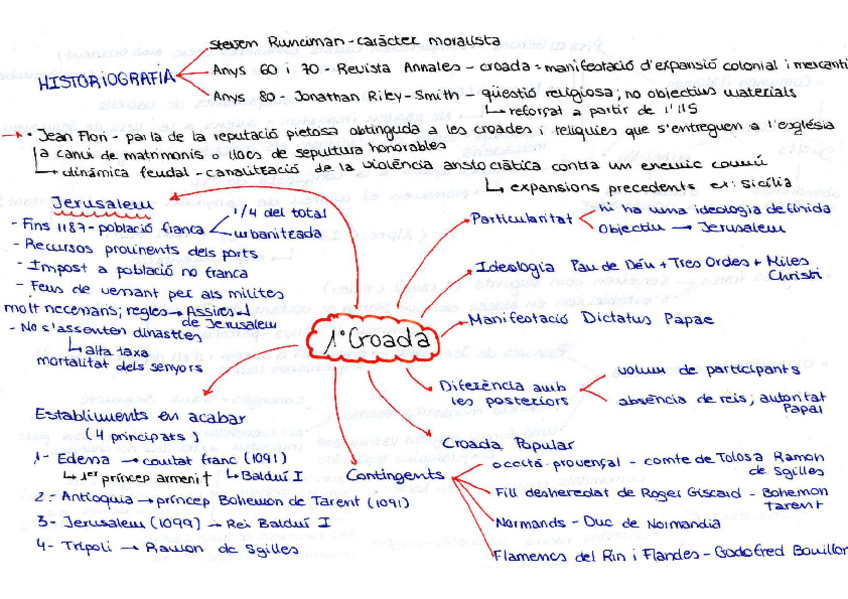 Steven Runciman - caràcter moralista
HISTORIOGRAFIA
Anys 60 i 70 - Revista Annales - croada = manifestació d'expansió colonial i mercanti
Anys 80 - Jonathan Riley-Smith - qüestió religiosa; no objectius materials
reforçat a partir de l'11S
→ • Jean Flori - parla de la reputació pietosa obtinguda a les croades i relíquies que s'entreguen a l'església
a canvi de matrimonis o llocs de sepultura honorables
→ dinàmica feudal - canalització de la violència aristocràtica contra un enemic comú
expansions precedents ex: Sicília
Jerusalem
- Fins 1187 - població franca
1/4 del total
urbanitzada
- Recursos provinents dels ports
- Impost a població no franca
- Feus de vensant per als milites
molt necenaris; regles → Assires
de Jerusalem
- No s'assenten dinasties
alta taxa
mortalitat dels senyors
Particularitat
hi ha una ideologia definida
Objectiu → Jerusalem
Ideologia Pau de Déu + Tres Ordes + Miles
Christi
1ª Croada
Manifestació Dictatus Papae
Diferència amb
les posteriors
volum de participants
absència de reis; autoritat
Papal
Croada Popular
Establiments en acabar
(4 principats)
1- Edessa → comtat franc (1091)
→ 1er príncep armeni†
Balduí I
2- Antioquia → príncep Bohemon de Tarent (1091)
3- Jerusalem (1099) → Rei Balduí I
4- Trípoli → Ramon de Sgilles
Contingents
occità-provençal - comte de Tolosa Ramon
de Sgilles
Fill desheredat de Roger Giscard - Bohemon
Tarent
Normands - Duc de Normandia
Flamencs del Rin i Flandes - Godofred Bouillon